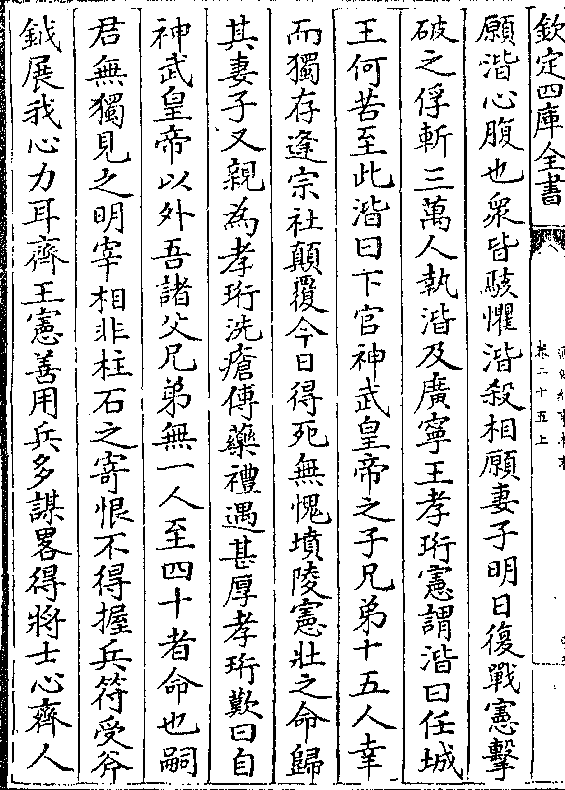 欽定四庫全書
卷二十五上
願湝心腹也衆皆駭懼湝殺相願妻子明日復戰憲擊
破之俘斬三萬人執湝及廣寧王孝珩憲謂湝曰任城
王何苦至此湝曰下官神武皇帝之子兄弟十五人幸
而獨存逢宗社顛覆今日得死無愧墳陵憲壯之命歸
其妻子又親為孝珩洗瘡傅藥禮遇甚厚孝珩歎曰自
神武皇帝以外吾諸父兄弟無一人至四十者命也嗣
君無獨見之明宰相非柱石之寄恨不得握兵符受斧
鉞展我心力耳齊王憲善用兵多謀畧得將士心齊人